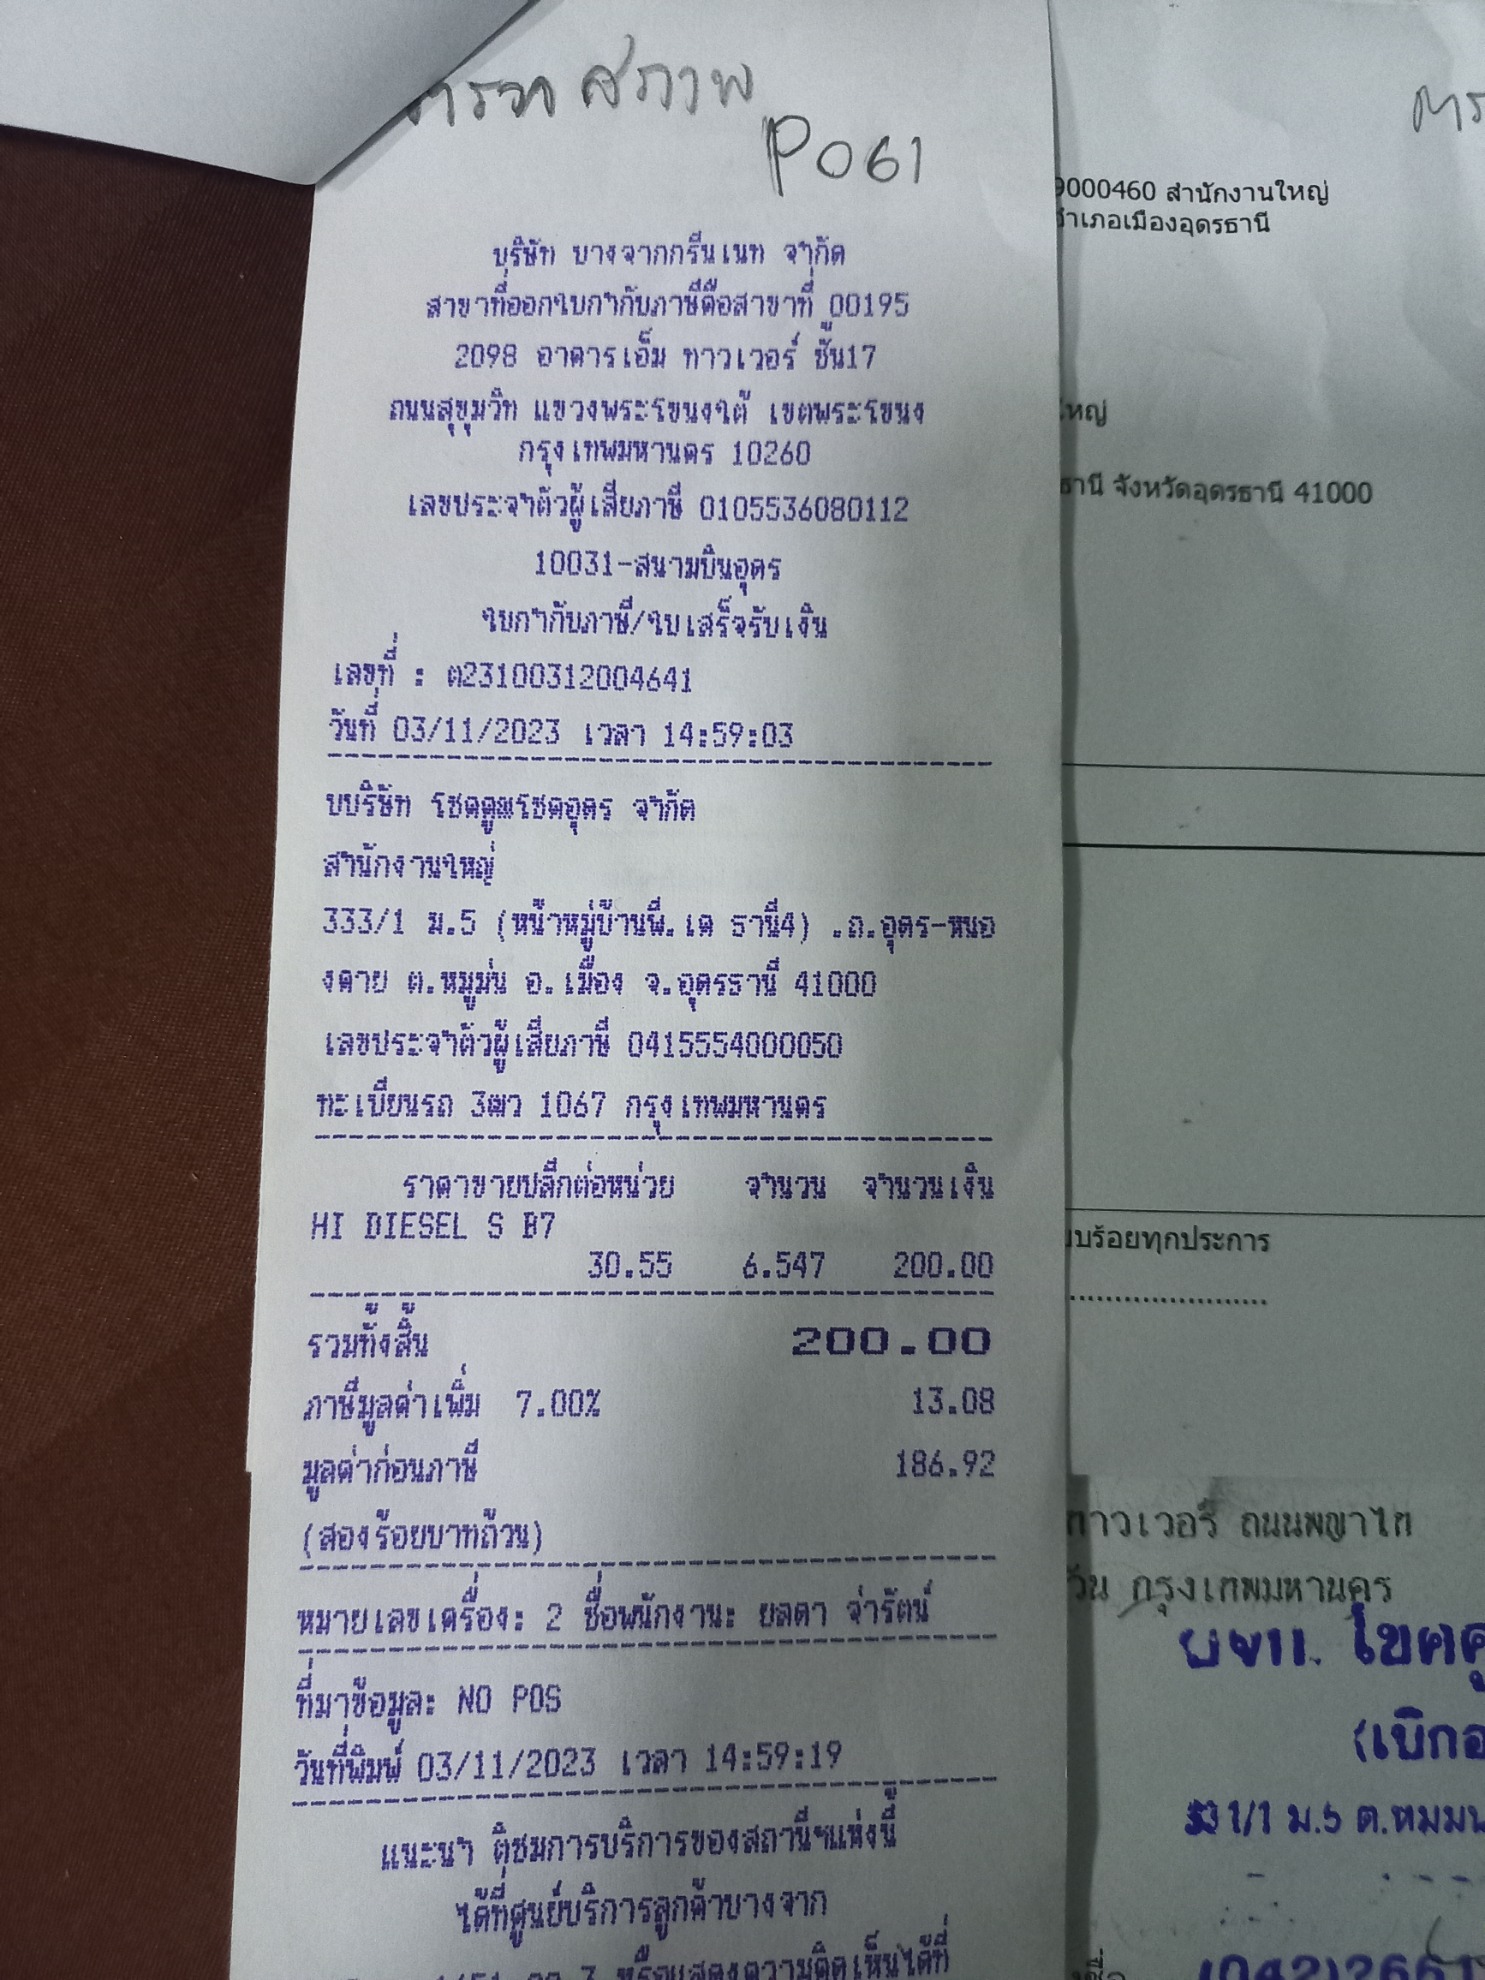 สภาพ
P061
บริษัท บางจากกรีนเนท จำกัด
สาขาที่ออกใบกำกับภาษีคือสาขาที่ 00195
2098 อาคารเอ็ม ทาวเวอร์ ชั้น17
ถนนสุขุมวิท แขวงพระโขนงใต้ เขตพระโขนง
กรุงเทพมหานคร 10260
เลขประจำตัวผู้เสียภาษี 0105536080112
10031-สนามบินอุดร
ใบกำกับภาษี/ใบเสร็จรับเงิน
เลขที่ : ต23100312004641
วันที่ 03/11/2023 เวลา 14:59:03
บบริษัท โชคคูณโชคอุดร จำกัด
สำนักงานใหญ่
333/1 ม.5 (หน้าหมู่บ้านพี.เค ธานี4) .ถ.อุดร-หนอ
งคาย ต.หมูม่น อ.เมือง จ.อุดรธานี 41000
เลขประจำตัวผู้เสียภาษี 0415554000050
ทะเบียนรถ 3ฒว 1067 กรุงเทพมหานคร
ราคาขายปลีกต่อหน่วย จำนวน จำนวนเงิน
HI DIESEL S B7
30.55 6.547 200.00
รวมทั้งสิ้น 200.00
ภาษีมูลค่าเพิ่ม 7.00% 13.08
มูลค่าก่อนภาษี 186.92
(สองร้อยบาทถ้วน)
หมายเลขเครื่อง: 2 ชื่อพนักงาน: ยลดา จ่ารัตน์
ที่มาข้อมูล: NO POS
วันที่พิมพ์ 03/11/2023 เวลา 14:59:19
แนะนำ ติชมการบริการของสถานีฯแห่งนี้
ได้ที่ศูนย์บริการลูกค้าบางจาก
หรือแสดงความคิดเห็นได้ที่
9000460 สำนักงานใหญ่
อำเภอเมืองอุดรธานี
ใหญ่
ธานี จังหวัดอุดรธานี 41000
บร้อยทุกประการ
ทาวเวอร์ ถนนพญาไท
วัน กรุงเทพมหานคร
ม.5